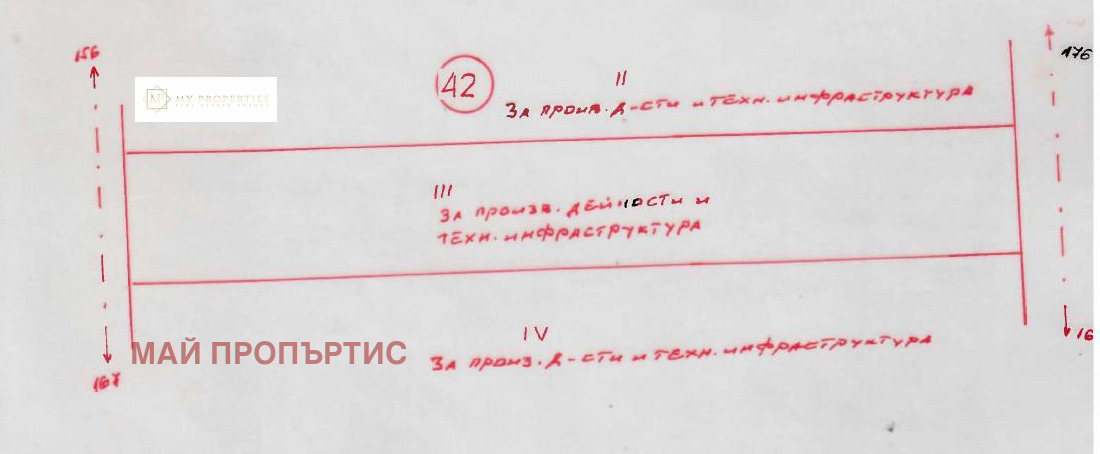 156
176
42
II
За произв. д-сти и техн. инфраструктура
MP MY PROPERTIES
REAL ESTATE AGENCY
III
За произв. дейности и
техн. инфраструктура
IV
За произ. д-сти и техн. инфраструктура
МАЙ ПРОПЪРТИС
167
16